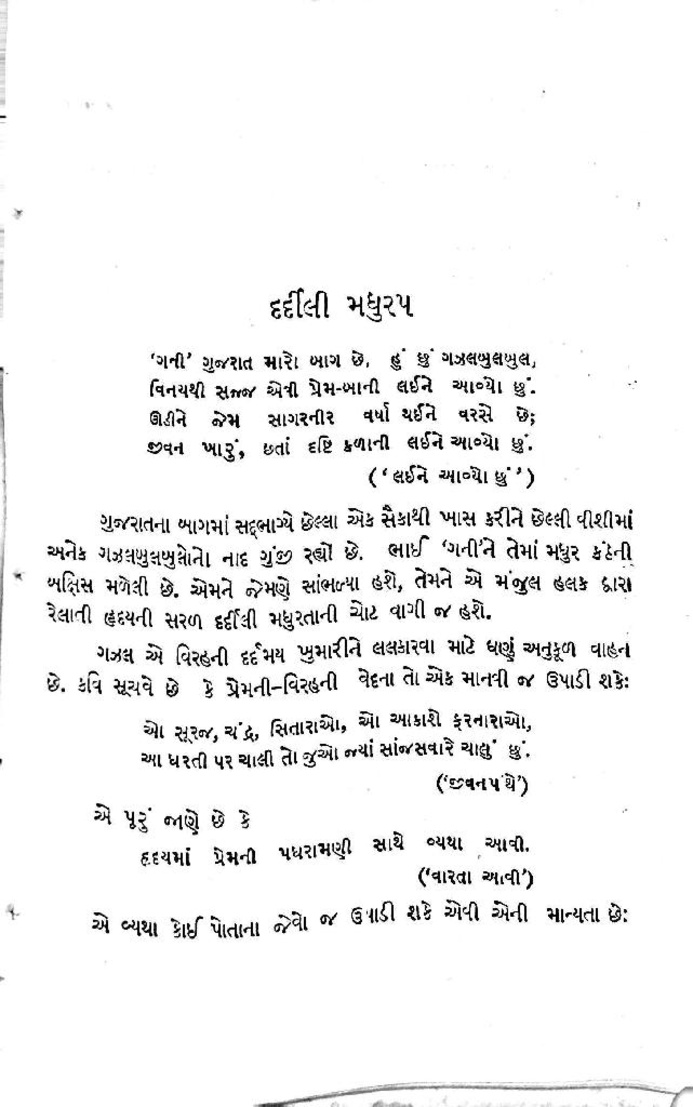 દર્દીલી મધુરપ
‘ગની’ ગુજરાત મારો બાગ છે, હું છું ગઝલબુલબુલ,
વિનયથી સજ્જ એવી પ્રેમ-બાની લઈને આવ્યો છું.
ઊડીને જેમ સાગરનીર વર્ષા થઈને વરસે છે;
જીવન ખારું, છતાં દૃષ્ટિ કળાની લઈને આવ્યો છું.
(‘લઈને આવ્યો છું’)
ગુજરાતના બાગમાં સદ્ભાગ્યે છેલ્લા એક સૈકાથી ખાસ કરીને છેલ્લી વીશીમાં
અનેક ગઝલબુલબુલોનો નાદ ગુંજી રહ્યો છે. ભાઈ ‘ગની’ને તેમાં મધુર કંઠની
બક્ષિસ મળેલી છે. એમને જેમણે સાંભળ્યા હશે, તેમને એ મંજુલ હલક દ્વારા
રેલાતી હૃદયની સરળ દર્દીલી મધુરતાની ચોટ વાગી જ હશે.
ગઝલ એ વિરહની દર્દમય ખુમારીને લલકારવા માટે ઘણું અનુકૂળ વાહન
છે. કવિ સૂચવે છે કે પ્રેમની-વિરહની વેદના તો એક માનવી જ ઉપાડી શકે:
ઓ સૂરજ, ચંદ્ર, સિતારાઓ, ઓ આકાશે ફરનારાઓ,
આ ધરતી પર ચાલી તો જુઓ જ્યાં સાંજસવારે ચાલું છું.
(‘જીવનપંથે’)
એ પૂરું જાણે છે કે
હૃદયમાં પ્રેમની પધરામણી સાથે વ્યથા આવી.
(‘વારતા આવી’)
એ વ્યથા કોઈ પોતાના જેવો જ ઉપાડી શકે એવી એની માન્યતા છે: